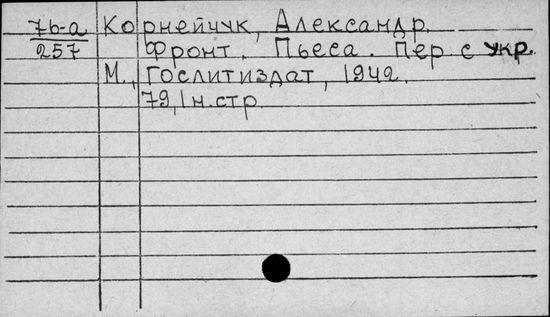 7б-а Корнейчук, Александр.
257 Фронт. Пьеса. Пер. с укр.
М., Гослитиздат, 1942.
79, 1 н. стр.